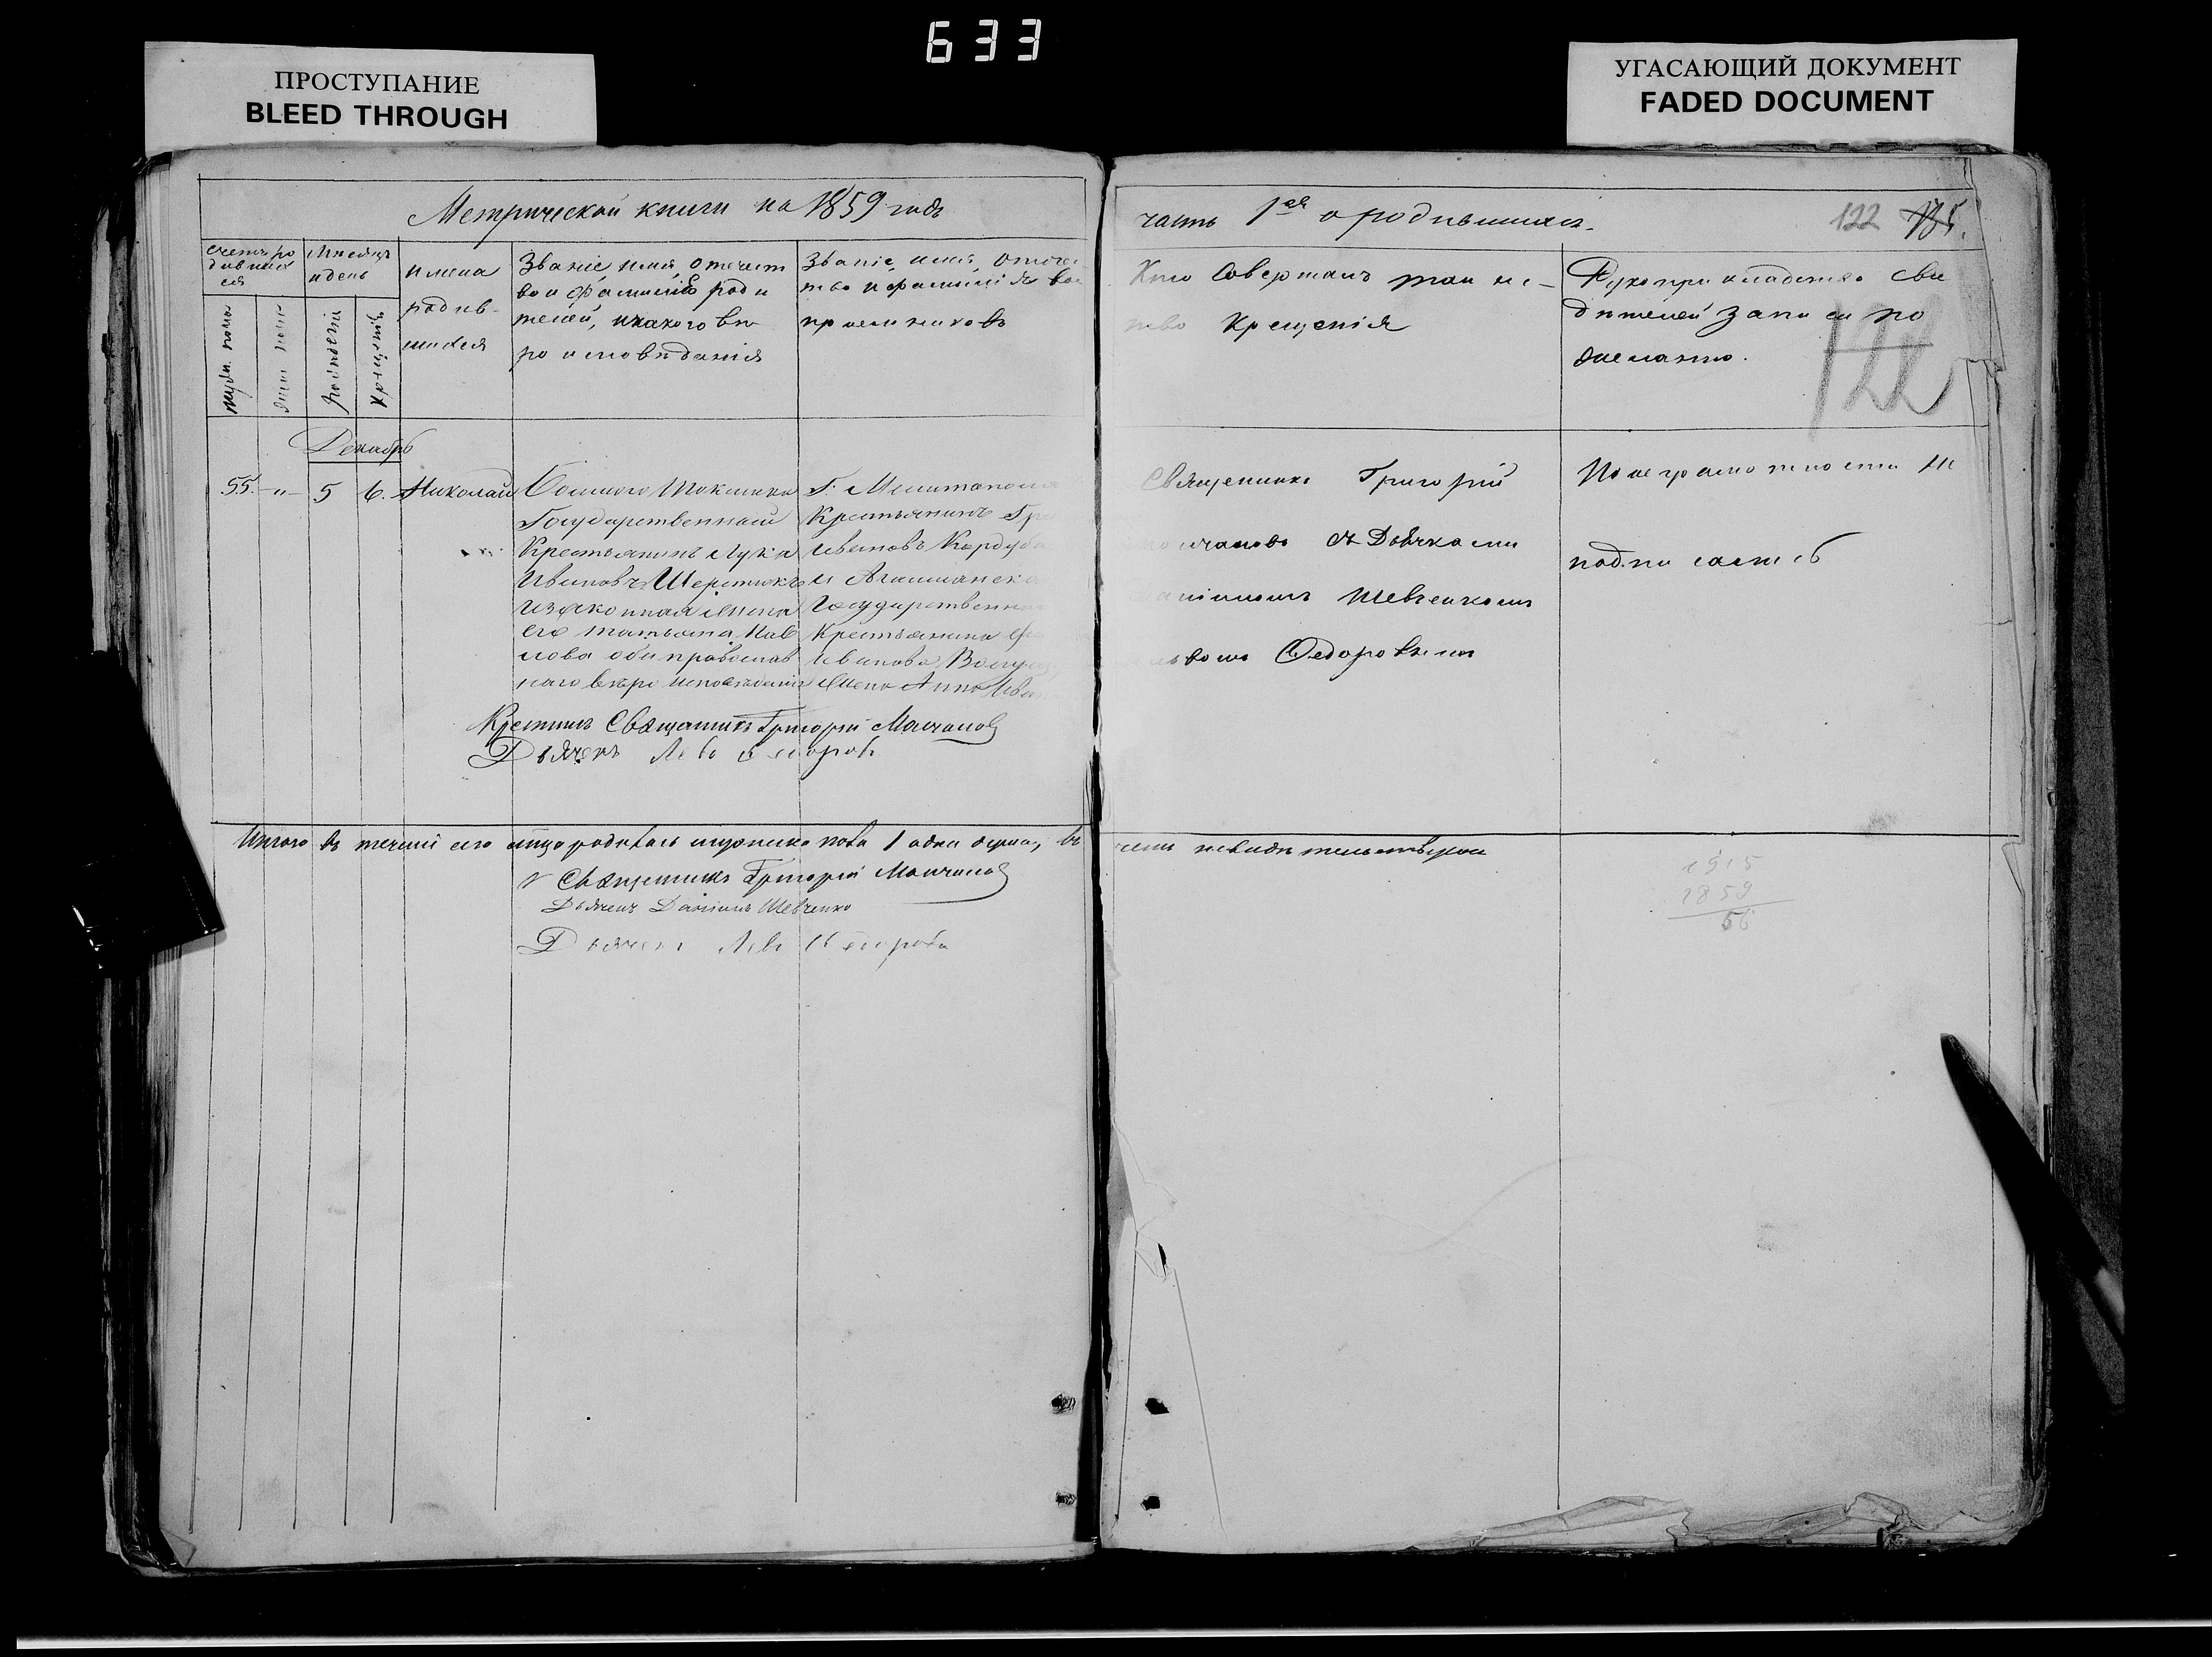 633
ПРОСТУПАНИЕ
BLEED THROUGH
УГАСАЮЩИЙ ДОКУМЕНТ
FADED DOCUMENT
Метрической книги на 1859 годъ
часть 1ая о родившихся.
122
счетъ ро
дивших
ся
Мѣсяцъ
и день
имена
родив-
шихся
Званіе имя, отчест
во и фамилія роди
телей, и какого вѣ
роисповѣданія
Званіе, имя, отче
тво и фамилія во
пріемниковъ
Кто совершалъ таинс-
тво крещенія
Рукоприкладство сви
дѣтелей записи по
желанію.
муж. пола
жен. пола
рожденія
крещенія
122
Декабрь
55. -"- 5 6. Николай
Государственный
Крестьянинъ Лука
Ивановъ
и законная жена
его Татьяна Пав
лова оба православ
наго вѣроисповѣданія
Г. Мелитополя
Крестьянинъ
Ивановъ
Государственна
Крестьянина
Иванова
жена Анна Ива
Священникъ Григорій
Молчановъ съ Дьячками
Даніиломъ Шевченкомъ
Львомъ Федоровымъ
По неграмотности не
подписались
Крестилъ Священникъ Григорій Молчановъ
Дьячекъ Левъ Федоровъ
Итого въ теченіи сего мѣсяца родилось мужеска пола 1 одна душа, въ
чемъ и свидѣтельствуемъ
Священникъ Григорій Молчановъ
Дьячекъ Даніилъ Шевченко
Дьячекъ Левъ Федоровъ
1915
1859
56